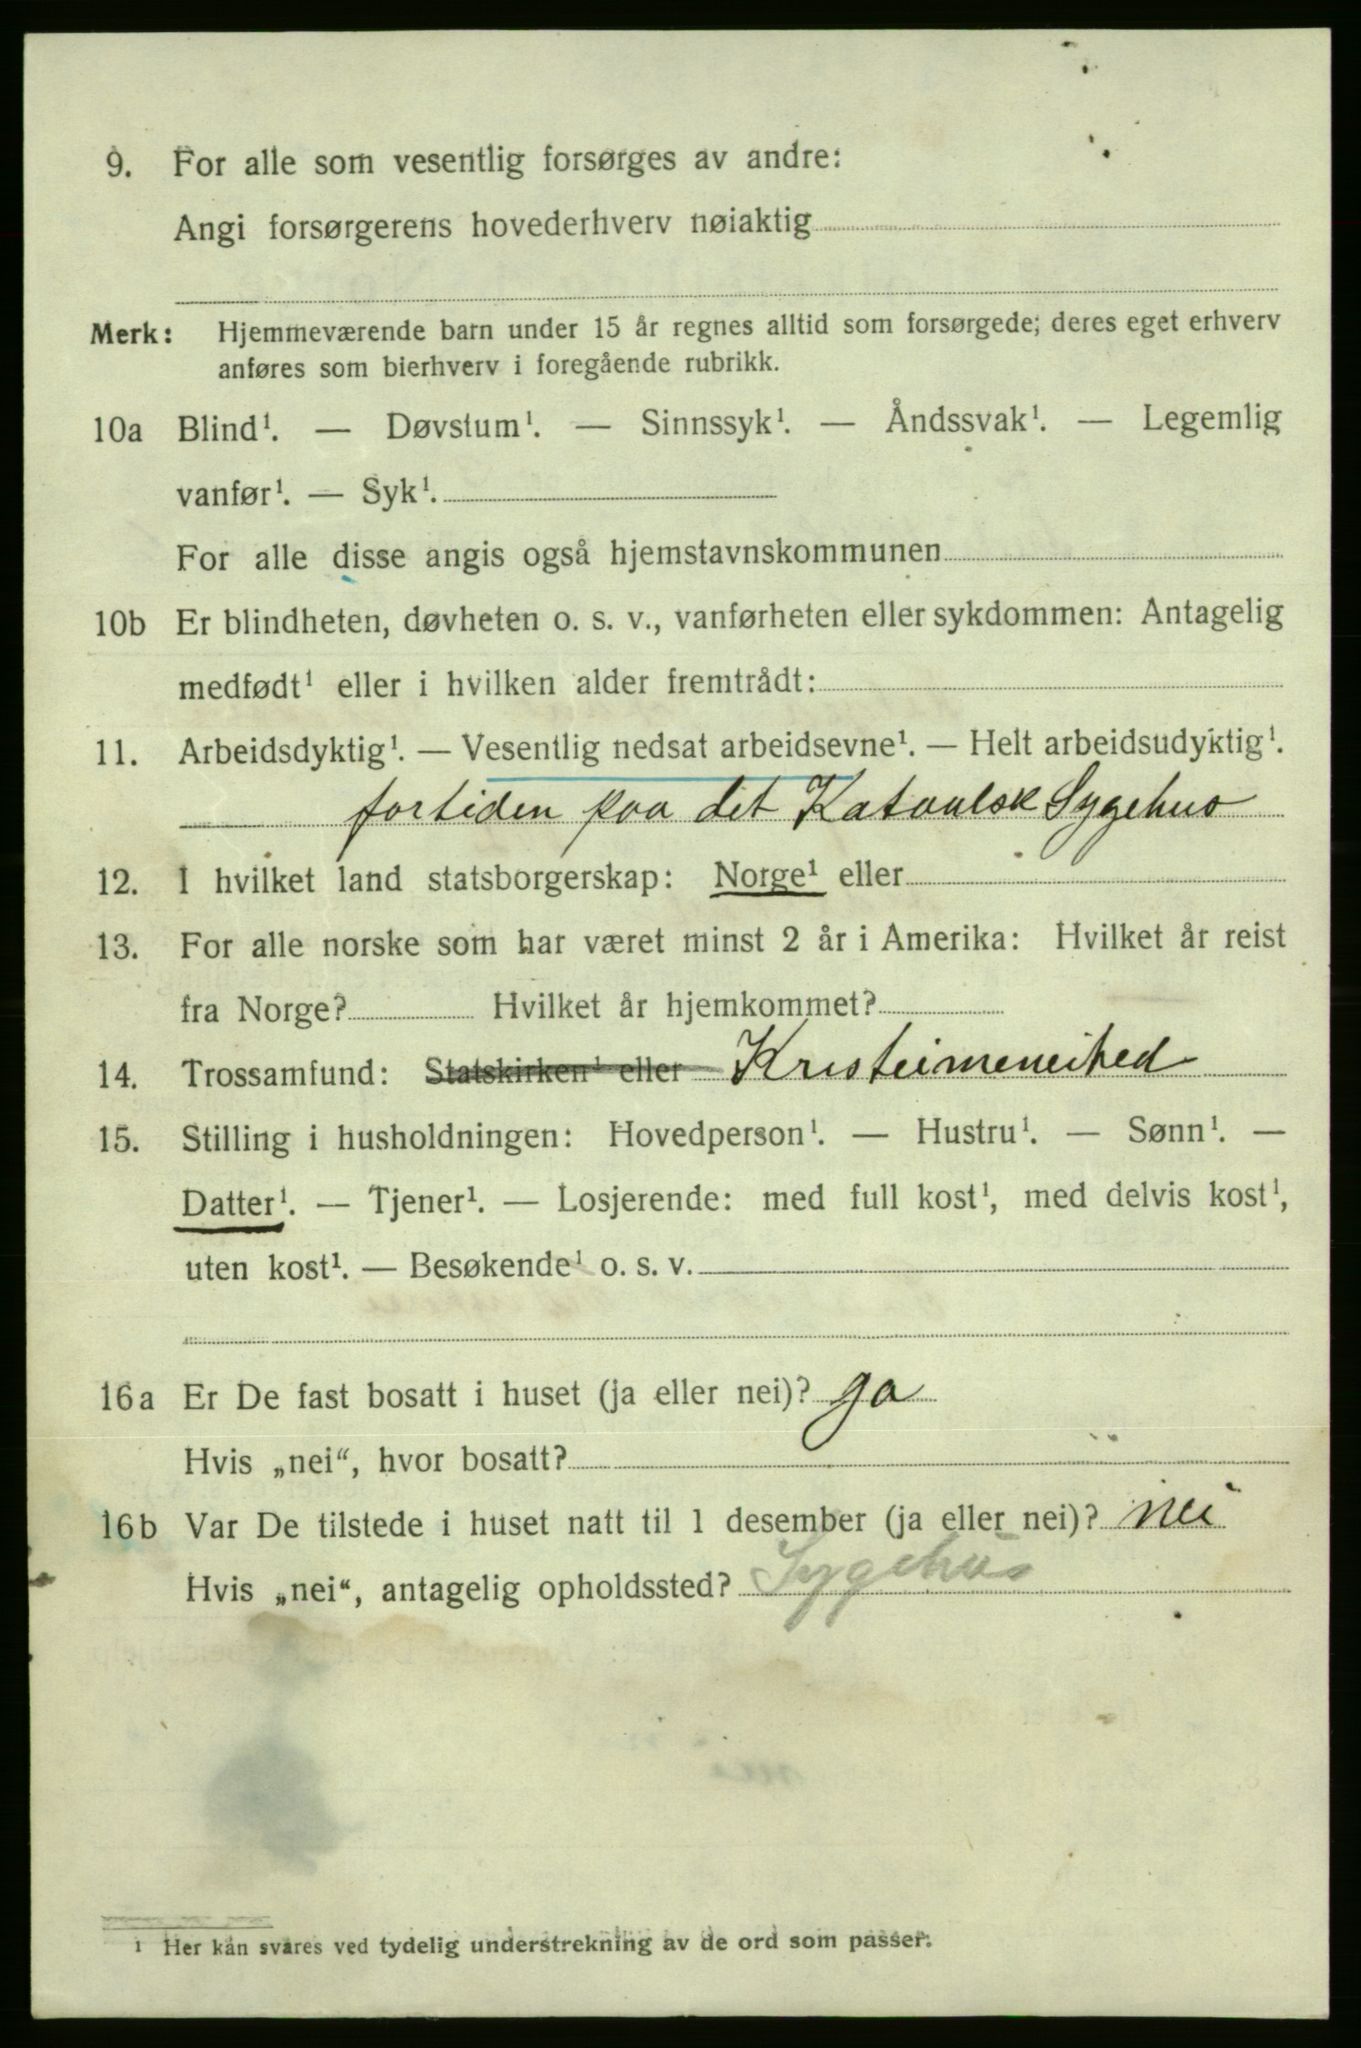 9. For alle som vesentlig forsørges av andre:
Angi forsørgerens hovederhverv nøiaktig
Merk: Hjemmeværende barn under 15 år regnes alltid som forsørgede; deres eget erhverv
anføres som bierhverv i foregående rubrikk.
10a Blind¹. — Døvstum¹. — Sinnssyk¹. — Åndssvak¹. — Legemlig
vanfør¹. — Syk¹.
For alle disse angis også hjemstavnskommunen
10b Er blindheten, døvheten o. s. v., vanførheten eller sykdommen: Antagelig
medfødt¹ eller i hvilken alder fremtrådt:
11. Arbeidsdyktig¹. — Vesentlig nedsat arbeidsevne¹. — Helt arbeidsudyktig¹.
fortiden paa det Katoulsk Sygehus
12. I hvilket land statsborgerskap: Norge¹ eller
13. For alle norske som har været minst 2 år i Amerika: Hvilket år reist
fra Norge? Hvilket år hjemkommet?
14. Trossamfund: Statskirken¹ eller Kristeimeneihed
15. Stilling i husholdningen: Hovedperson¹. — Hustru¹. — Sønn¹. —
Datter¹. — Tjener¹. — Losjerende: med full kost¹, med delvis kost¹,
uten kost¹. — Besøkende¹ o. s. v.
16a Er De fast bosatt i huset (ja eller nei)? ja
Hvis „nei“, hvor bosatt?
16b Var De tilstede i huset natt til 1 desember (ja eller nei)? nei
Hvis „nei“, antagelig opholdssted? Sygehus
¹ Her kan svares ved tydelig understrekning av de ord som passer.